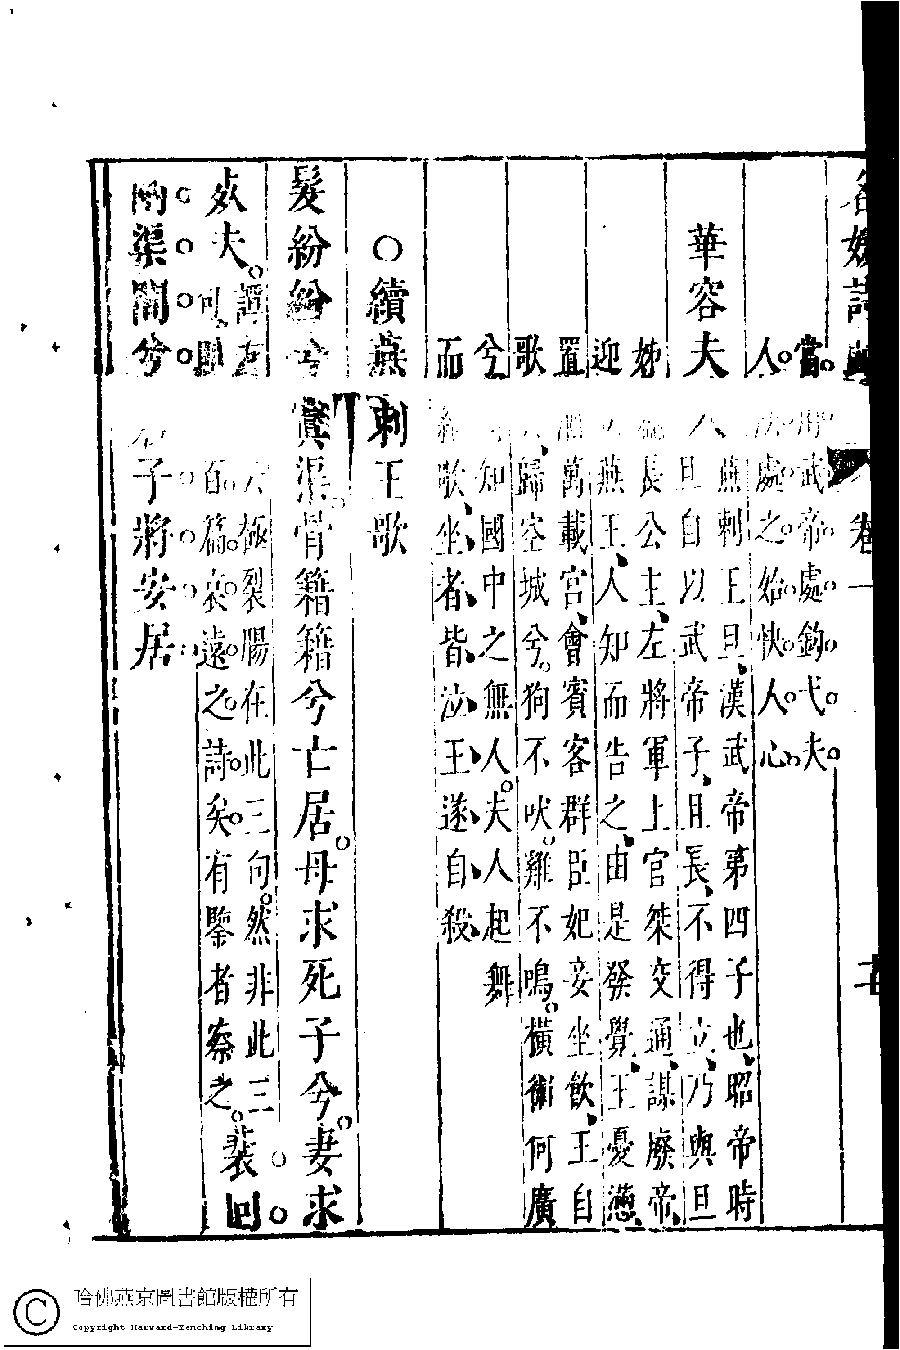 名媛詩歸 卷一
當時武帝處鈎弋夫
人。處之始快人心
華容夫人 燕刺王旦漢武帝第四子也昭帝時
旦自以武帝子且長不得立乃與旦
姊鄂長公主左將軍上官桀交通謀廢帝
迎立燕王人知而告之由是發覺王憂懣
置酒萬載宮會賓客群臣妃妾坐飲王自
歌曰歸空城兮狗不吠雞不鳴橫術何廣
兮固知國中之無人夫人起舞
而續歌坐者皆泣王遂自殺
○續燕刺王歌
髮紛紛兮寘渠骨籍籍兮亡居母求死子兮妻求
死夫 六極裂腸在此三句然非此三
百篇哀遠之詩矣有鑒者察之 裴回
兩渠間兮君子將安居
哈佛燕京圖書館版權所有
Copyright Harvard-Yenching Library